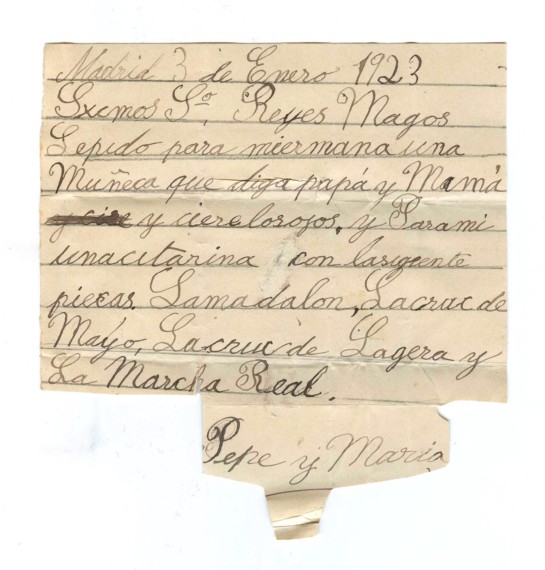 Madrid 3 de Enero 1923
Sxcmos Sº, Reyes Magos
Lepido para miermana una
Muñeca que diga papá y Mamá
y cire y cierelosojos, y Parami
unacitarina con lasigente
piecas. Lamadalon, Lacruc de
Mayo, Lacruc de Lagera y
La Marcha Real.
Pepe y Maria